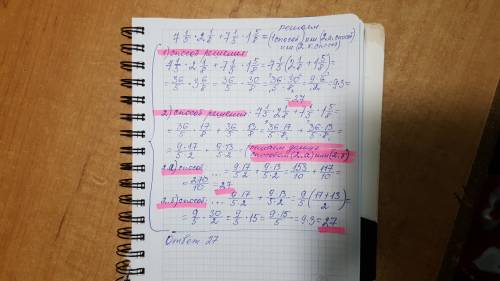 7 1/5 · 2 1/8 + 7 1/5 · 1 5/8 = решаем
(1 способ) или (2.а. способ)
или (2.б. способ)
1) способ решения
7 1/5 · 2 1/8 + 7 1/5 · 1 5/8 = 7 1/5 (2 1/8 + 1 5/8) =
= 36/5 · 3 6/8 = 36/5 · 30/8 = 36·30/5·8 = 9·6/2 = 9·3 =
= 27
2) способ решения. 7 1/5 · 2 1/8 + 7 1/5 · 1 5/8 =
= 36/5 · 17/8 + 36/5 · 13/8 = 36·17/5·8 + 36·13/5·8 =
= 9·17/5·2 + 9·13/5·2 = (решаем дальше
способом (2.а) или (2.б)
2.а) способ ... = 9·17/5·2 + 9·13/5·2 = 153/10 + 117/10 =
= 270/10 = 27
2.б) способ ... = 9·17/5·2 + 9·13/5·2 = 9/5 (17+13/2) =
= 9/5 · 30/2 = 9/5 · 15 = 9·15/5 = 9·3 = 27
Ответ 27